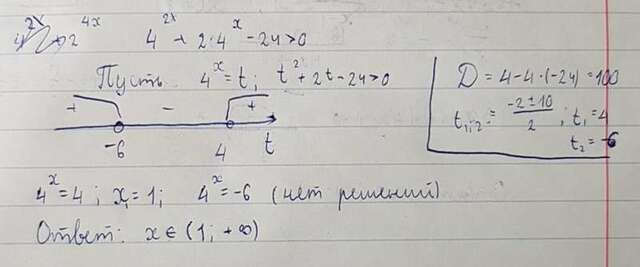 4^{2x} + 2·4^x - 24 > 0
Пусть 4^x = t; t^2 + 2t - 24 > 0
+ - +
-6 4 t
D = 4 - 4·(-24) = 100
t_{1,2} = \frac{-2 ± 10}{2}; t_1 = 4
t_2 = -6
4^x = 4; x_1 = 1; 4^x = -6 (нет решений)
Ответ: x ∈ (1; +∞)